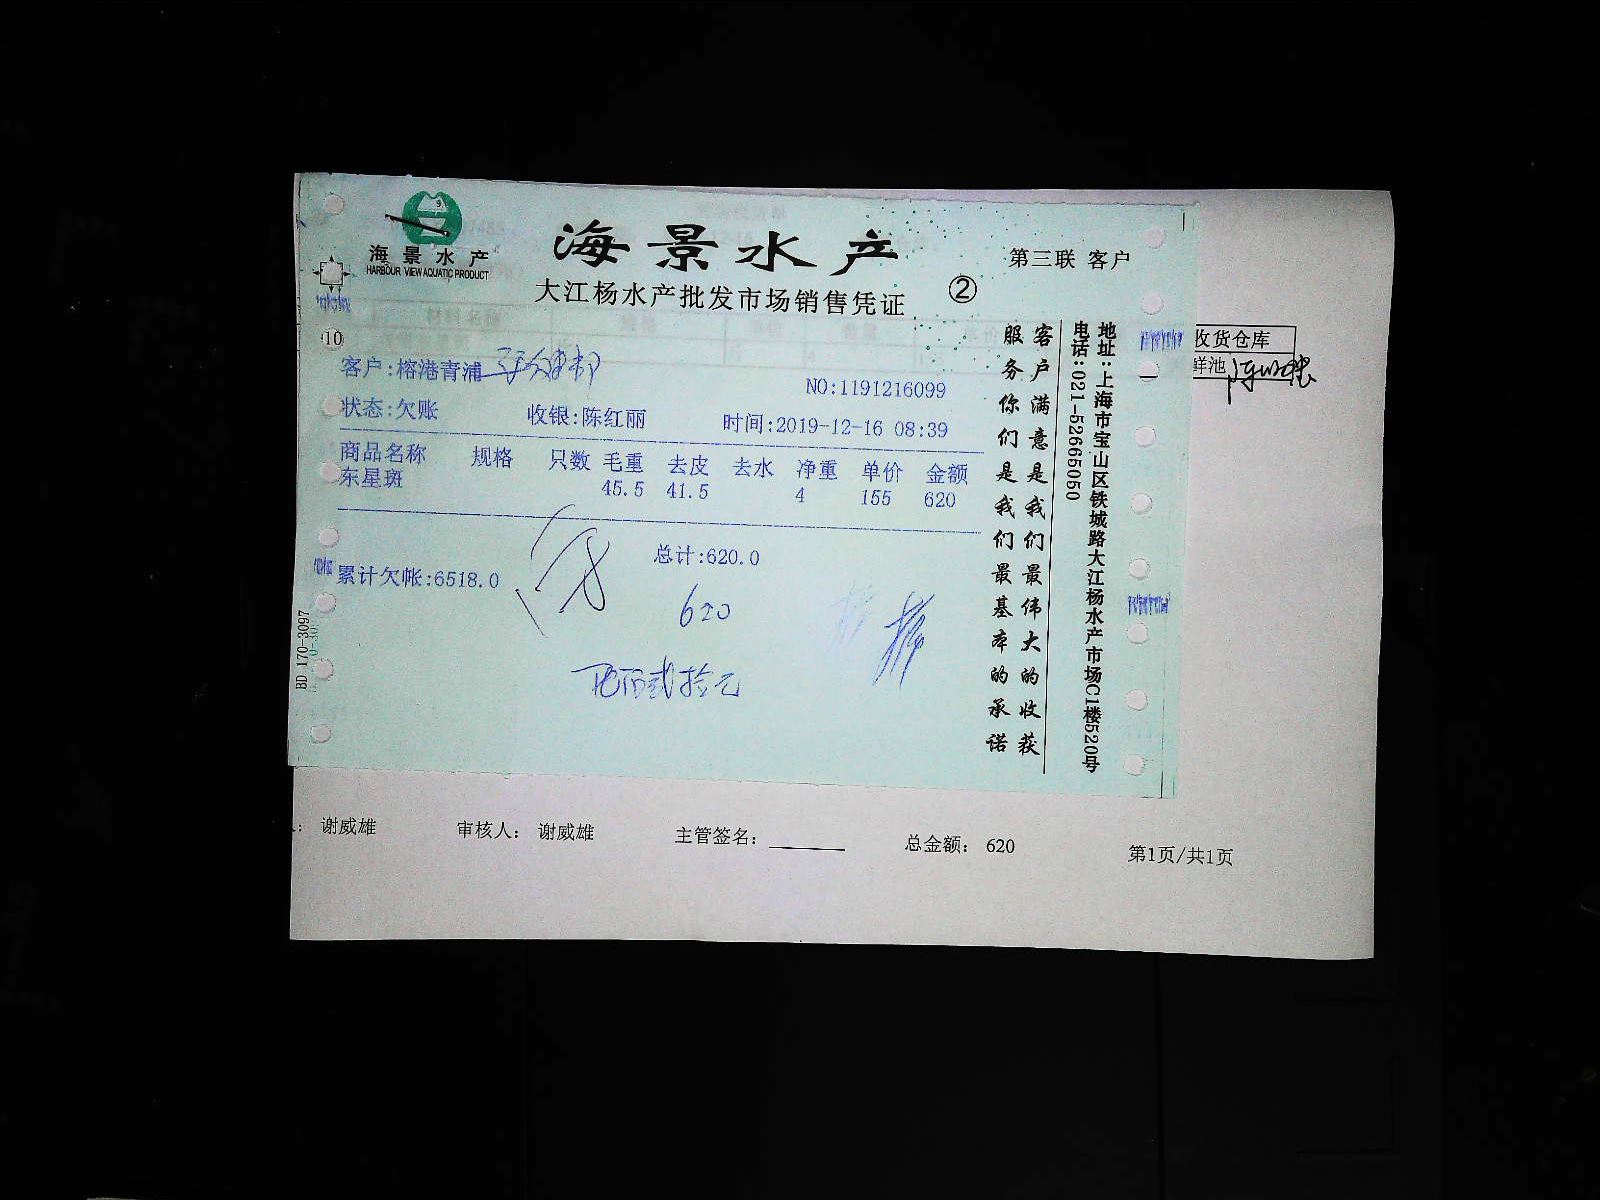 海景水产
HARBOUR VIEW AQUATIC PRODUCT
海景水产
大江杨水产批发市场销售凭证
②
第三联 客户
10
客户:榕港青浦
NO:1191216099
状态:欠账 收银:陈红丽 时间:2019-12-16 08:39
商品名称 规格 只数 毛重 去皮 去水 净重 单价 金额
东星斑 45.5 41.5 4 155 620
总计:620.0
累计欠帐:6518.0
620
陆百贰拾元
客户满意是我们最伟大的收获
服务你们是我们最基本的承诺
地址:上海市宝山区铁城路大江杨水产市场C1楼520号
电话:021-52665050
BD 170-3097
收货仓库
鲜池
谢威雄 审核人: 谢威雄 主管签名: 总金额: 620 第1页/共1页